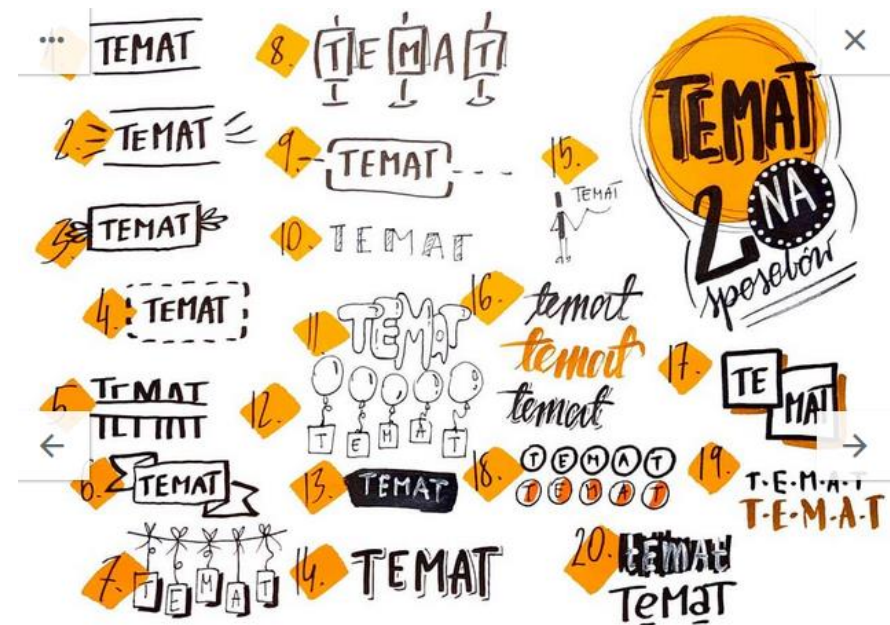 TEMAT
2 NA
sposobów
TEMAT
2. TEMAT
3. TEMAT
4. TEMAT
5. TEMAT
6. TEMAT
7. TEMAT
8. TEMAT
9. TEMAT
10. TEMAT
11. TEMAT
12. TEMAT
13. TEMAT
14. TEMAT
15. TEMAT
16. temat
temat
temat
17. TE
MAT
18. TEMAT
TEMAT
19. T·E·M·A·T
T·E·M·A·T
20. tEMAt
TeMaT